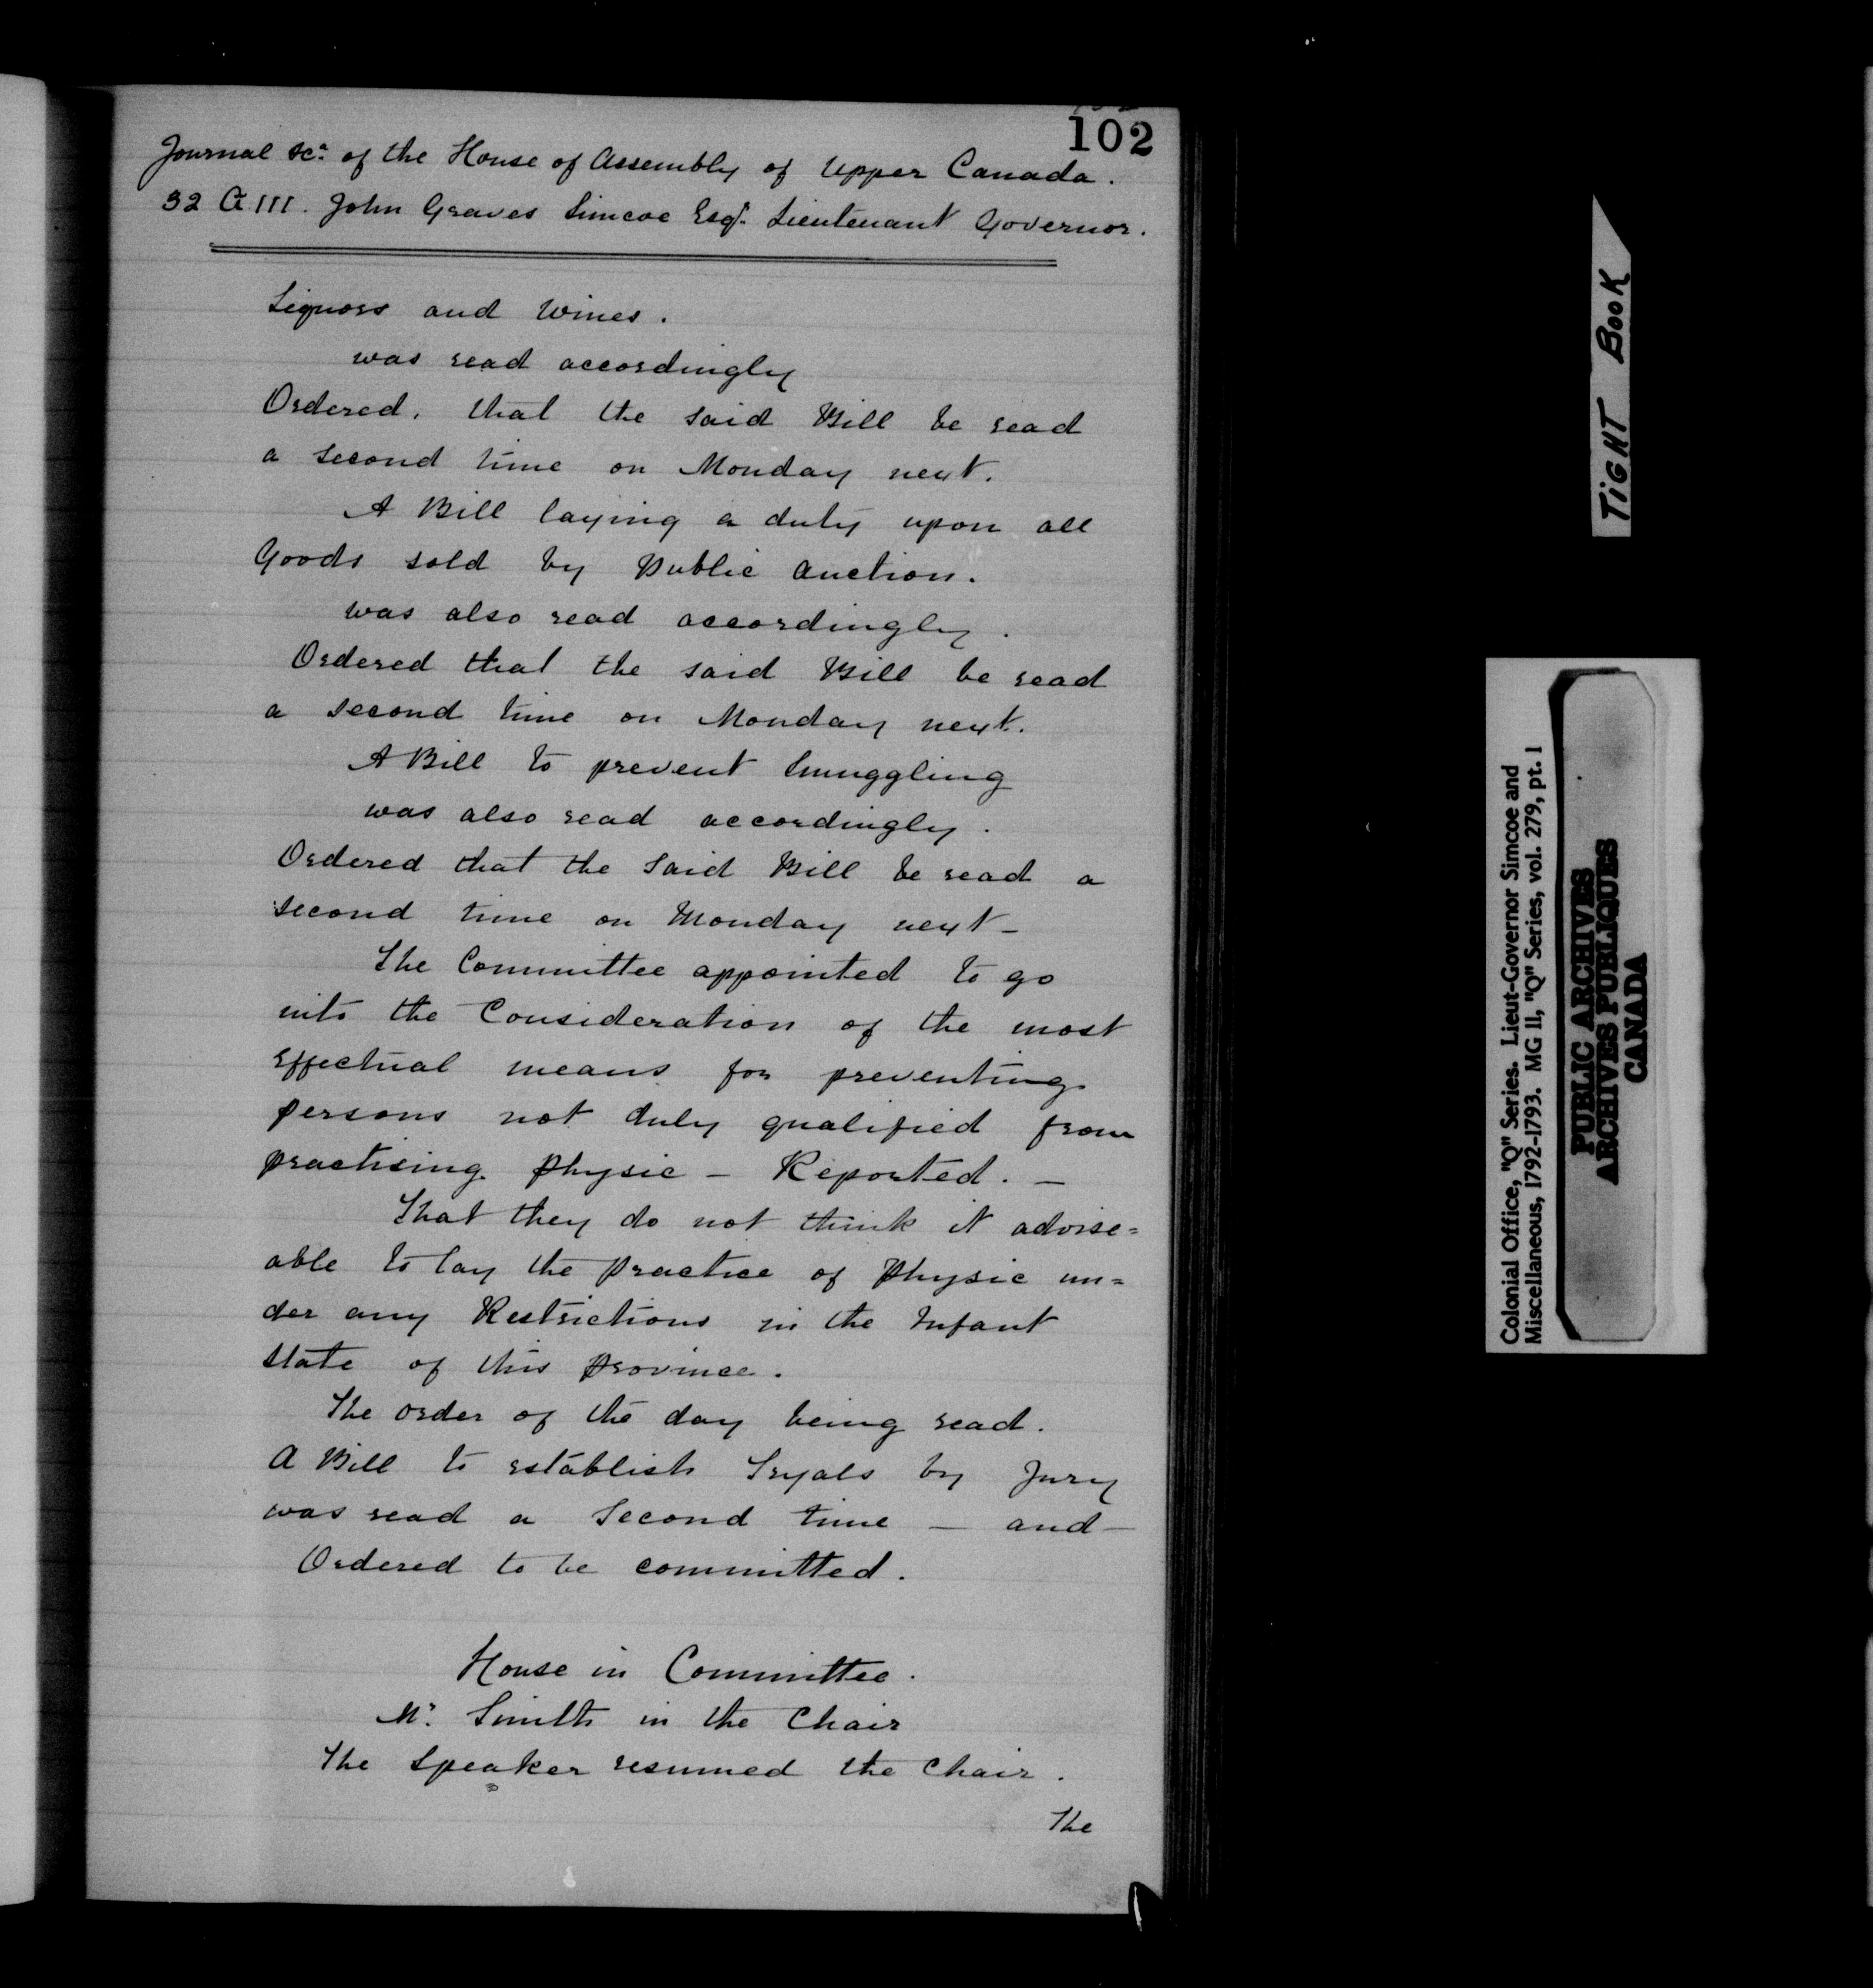 102
Journal &c. of the House of Assembly of Upper Canada.
32 G III. John Graves Simcoe Esqr. Lieutenant Governor.
Liquors and Wines.
was read accordingly
Ordered, that the said Bill be read
a second time on Monday next.
A Bill laying a duty upon all
Goods sold by Public Auction.
was also read accordingly.
Ordered that the said Bill be read
a second time on Monday next.
A Bill to prevent Smuggling
was also read accordingly.
Ordered that the said Bill be read a
second time on Monday next -
The Committee appointed to go
into the Consideration of the most
effectual means for preventing
persons not duly qualified from
practising Physic - Reported. -
That they do not think it advise=
able to lay the Practice of Physic un=
der any Restrictions in the Infant
state of this Province.
The order of the day being read.
A Bill to establish Tryals by Jury
was read a Second time - and -
Ordered to be committed.
House in Committee.
Mr. Smith in the Chair
The Speaker resumed the Chair.
The
TIGHT BOOK
Colonial Office, "Q" Series. Lieut-Governor Simcoe and
Miscellaneous, 1792-1793. MG 11, "Q" Series, vol. 279, pt. 1
PUBLIC ARCHIVES
ARCHIVES PUBLIQUES
CANADA